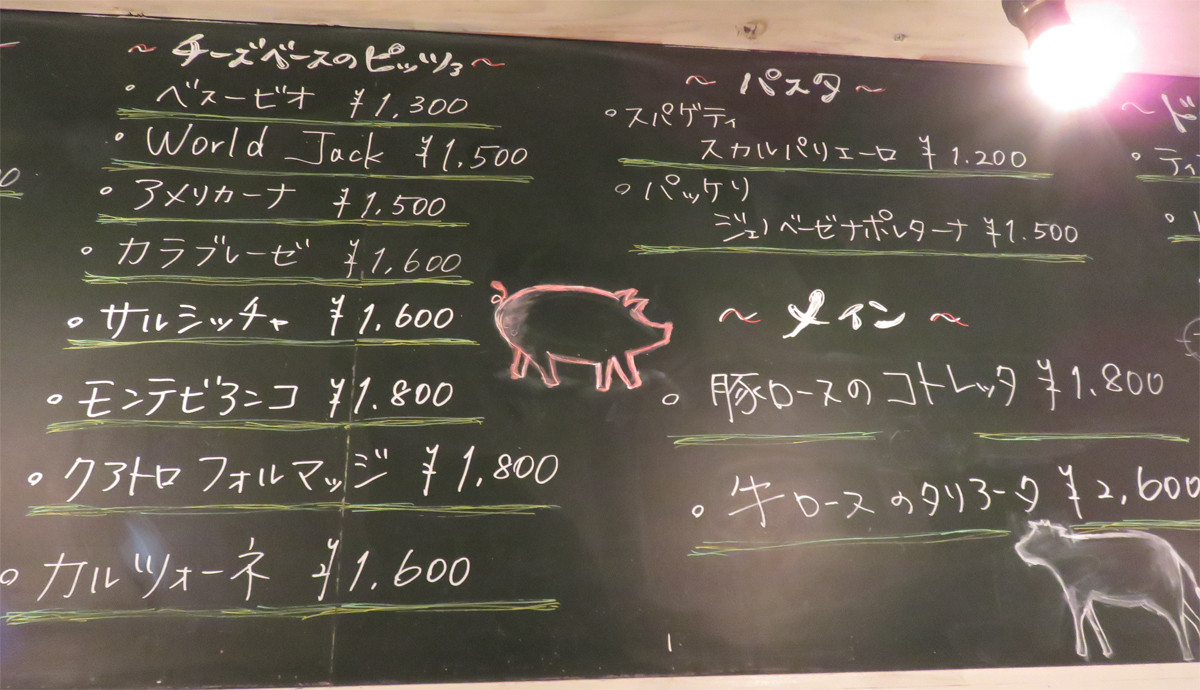 ~ チーズベースのピッツァ ~
・ベスービオ ¥1,300
・World Jack ¥1,500
・アメリカーナ ¥1,500
・カラブレーゼ ¥1,600
・サルシッチャ ¥1,600
・モンテビアンコ ¥1,800
・クアトロフォルマッジ ¥1,800
・カルツォーネ ¥1,600
~ パスタ ~
・スパゲティ
スカルパリエーロ ¥1.200
・パッケリ
ジェノベーゼナポレターナ ¥1.500
~ メイン ~
・豚ロースのコトレッタ ¥1.800
・牛ロースのタリアータ ¥2,600
~ ド
・ティ